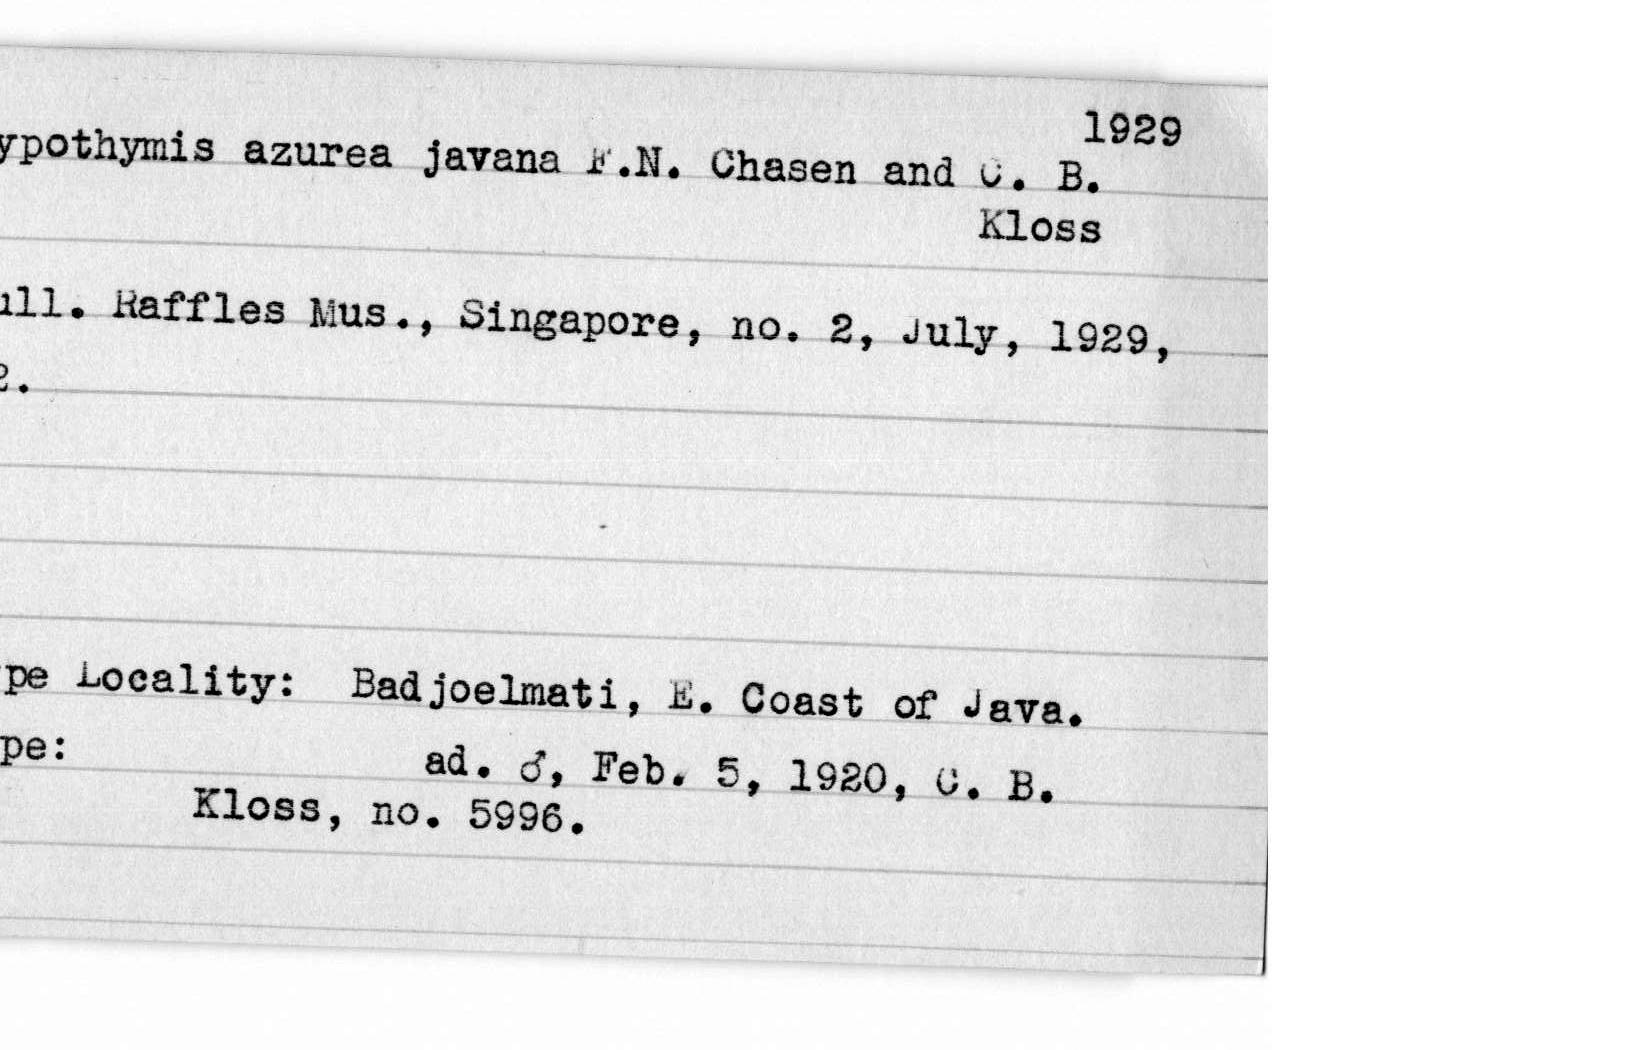 1929
ypothymis azurea javana F.N. Chasen and C. B.
Kloss
ull. Raffles Mus., Singapore, no. 2, July, 1929,
2.
pe Locality: Badjoelmati, E. Coast of Java.
pe: ad. ♂, Feb. 5, 1920, C. B.
Kloss, no. 5996.